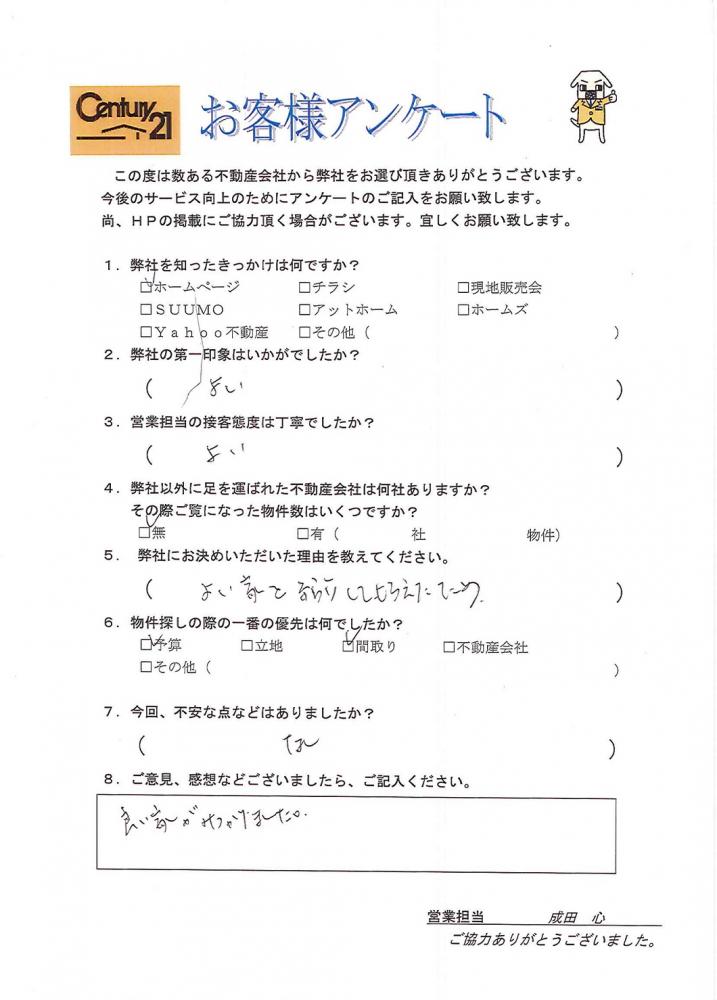 Century 21
お客様アンケート
この度は数ある不動産会社から弊社をお選び頂きありがとうございます。
今後のサービス向上のためにアンケートのご記入をお願い致します。
尚、ＨＰの掲載にご協力頂く場合がございます。宜しくお願い致します。
１．弊社を知ったきっかけは何ですか？
☑ホームページ □チラシ □現地販売会
□ＳＵＵＭＯ □アットホーム □ホームズ
□Ｙａｈｏｏ不動産 □その他（ ）
２．弊社の第一印象はいかがでしたか？
（ よい ）
３．営業担当の接客態度は丁寧でしたか？
（ よい ）
４．弊社以外に足を運ばれた不動産会社は何社ありますか？
その際ご覧になった物件数はいくつですか？
☑無 □有（ 社 物件）
５． 弊社にお決めいただいた理由を教えてください。
（ よい家を してもらえたため ）
６．物件探しの際の一番の優先は何でしたか？
☑予算 □立地 ☑間取り □不動産会社
□その他（ ）
７．今回、不安な点などはありましたか？
（ なし ）
８．ご意見、感想などございましたら、ご記入ください。
良い家がみつかりました。
営業担当 成田 心
ご協力ありがとうございました。